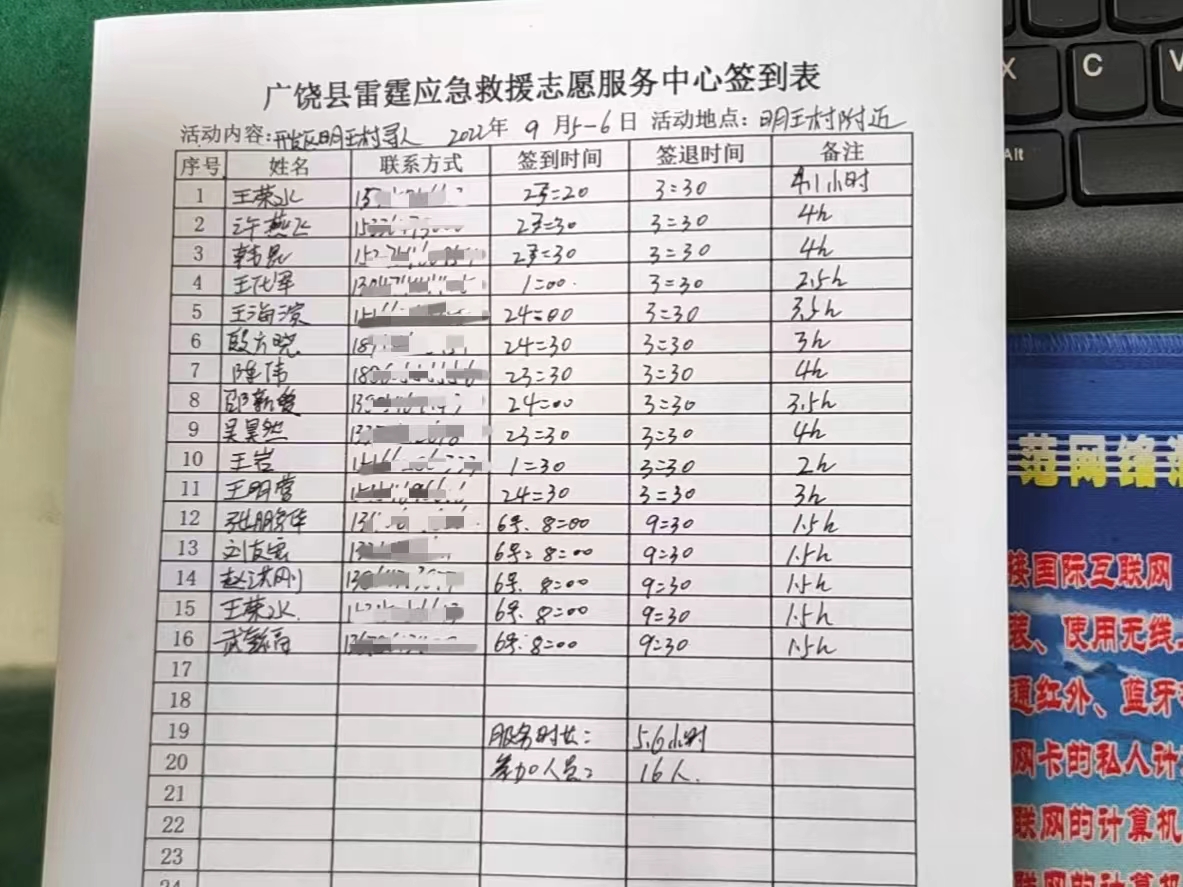 广饶县雷霆应急救援志愿服务中心签到表
活动内容:开发区明王村寻人 2022年 9月5-6日 活动地点:明王村附近
序号 姓名 联系方式 签到时间 签退时间 备注
1 王荣水 23:20 3:30 4.1小时
2 许燕飞 23:30 3:30 4h
3 韩昆 23:30 3:30 4h
4 王化军 1:00 3:30 2.5h
5 王海滨 24:00 3:30 3.5h
6 殷方晓 24:30 3:30 3h
7 陈伟 23:30 3:30 4h
8 24:00 3:30 3.5h
9 吴昊然 23:30 3:30 4h
10 王岩 1:30 3:30 2h
11 王明营 24:30 3:30 3h
12 张鹏华 6号:8:00 9:30 1.5h
13 刘友 6号:8:00 9:30 1.5h
14 赵洪刚 6号:8:00 9:30 1.5h
15 王荣水 6号:8:00 9:30 1.5h
16 6号:8:00 9:30 1.5h
17
18
19 服务时长: 5.6小时
20 参加人员: 16人.
21
22
23
24
X
C
V
Alt
范网络
接国际互联网
装、使用无线
通红外、蓝牙
网卡的私人计
联网的计算机
联网的计算机